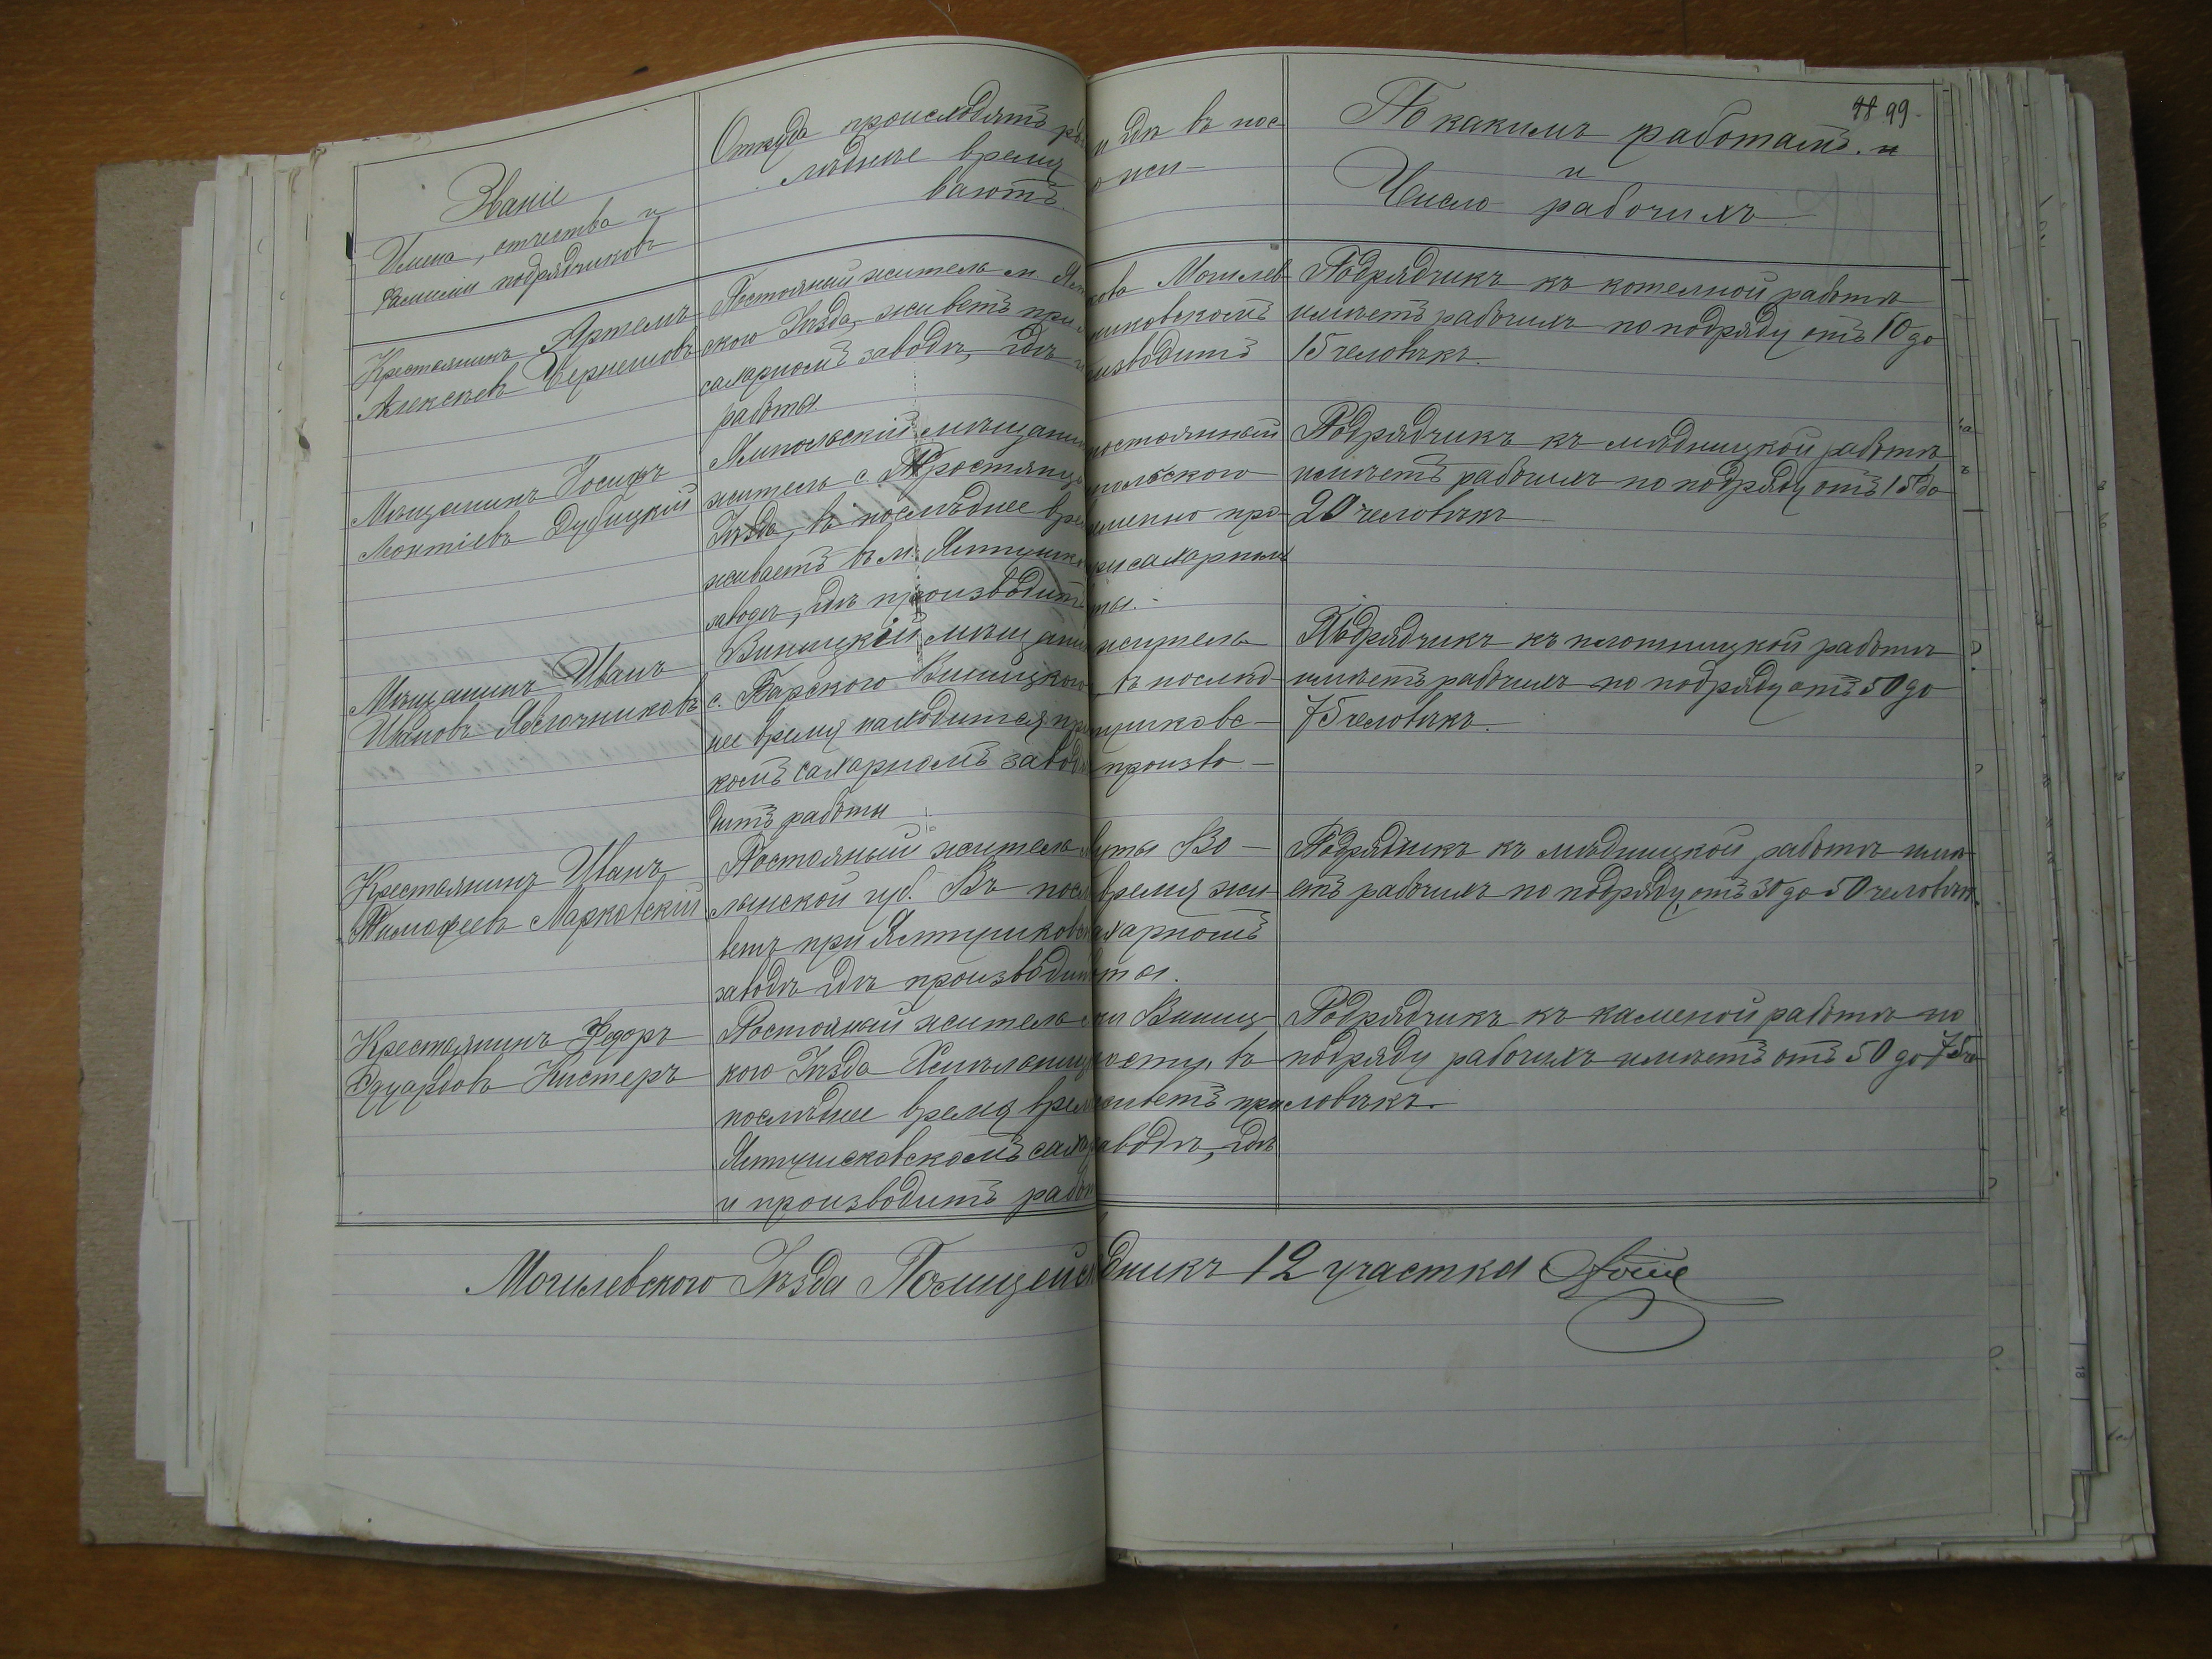 99
Званіе
Имена, отчества и
фамиліи подрядчиковъ
Откуда происходятъ и где въ пос
лѣднее время прожи-
ваютъ.
По какимъ работамъ. и
и
Число рабочихъ
Крестьянинъ Артемъ
Алексѣевъ
Постояный житель м. Могилев
ского Уѣзда, живетъ при
сахарномъ заводѣ, гдѣ и производитъ
работы.
Подрядчикъ къ котелной работѣ
имѣетъ рабочихъ по подряду отъ 10 до
15 человѣкъ.
Мѣщанинъ Іосифъ
Леонтіевъ Дубицкій
Ямпольскій мѣщанин постоянный
житель с. польского
Уѣзда, въ послѣднее время про-
живаетъ въ м. при сахарном
заводѣ, гдѣ производитъ работы.-
Подрядчикъ къ мѣдницкой работѣ
имѣетъ рабочихъ по подряду отъ 15 до
20 человѣкъ
Мѣщанинъ Иванъ
Ивановъ Яблочниковъ
Виницкій мѣщанин житель
с. Барского Виницкого въ послѣд-
нее время находится при Ялтушковс-
комъ сахарномъ заводѣ произво-
дитъ работы
Подрядчикъ къ плотницкой работѣ
имѣетъ рабочихъ по подряду отъ 50 до
75 человѣкъ.
Крестьянинъ Иванъ
Тимофеевъ Марковский
Постояный житель Во-
лынской губ. Въ время жи-
ветъ при Ялтушковс сахарномъ
заводѣ гдѣ производитъ работы.
Подрядчикъ къ мѣдницкой работѣ имѣ
етъ рабочихъ по подряду отъ 30 до 50 человѣкъ.
Крестьянинъ Федоръ
Эдуардовъ Кистеръ
Постояный житель Виниц
кого Уѣзда волости, въ
послѣднее время живетъ при
Ялтушковскомъ заводѣ, гдѣ
и производитъ работы
Подрядчикъ къ каменой работѣ по
подряду рабочихъ имѣетъ отъ 50 до 75 че
ловѣкъ.
Могилевского Уѣзда Полицейск дникъ 12 участка